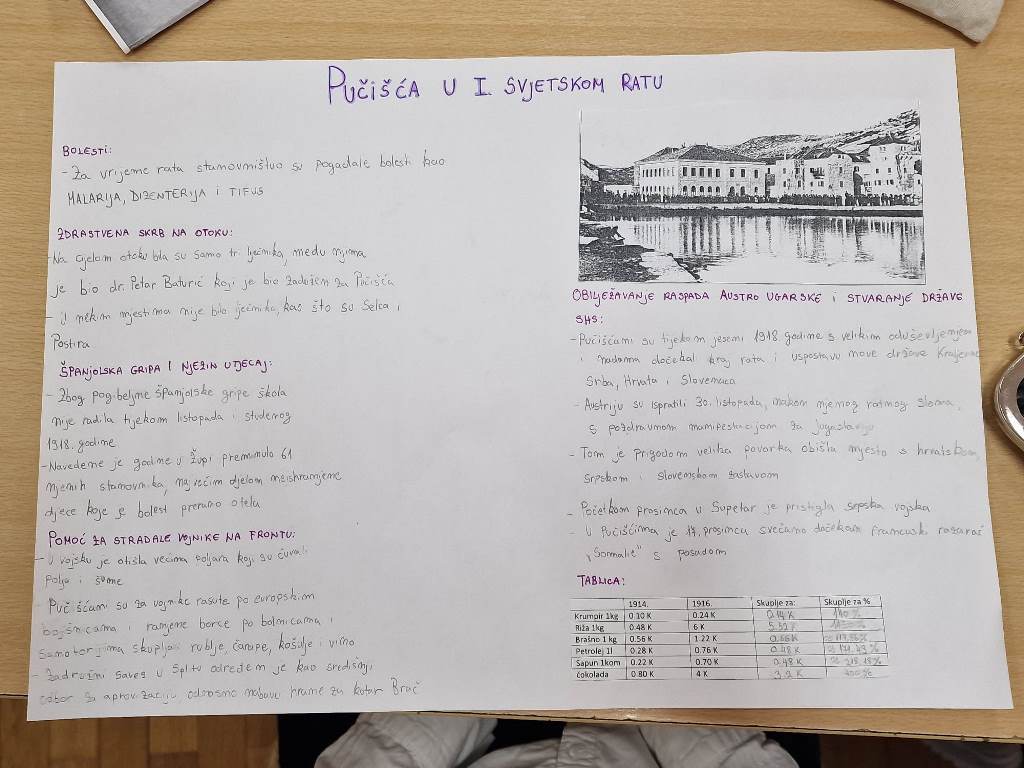 PUČIŠĆA U I. SVJETSKOM RATU
BOLESTI:
- Za vrijeme rata stanovništvo su pogađale bolesti kao
MALARIJA, DIZENTERIJA i TIFUS
ZDRASTVENA SKRB NA OTOKU:
- Na cijelom otoku bila su samo tri liječnika, među njima
je bio dr. Petar Baturić koji je bio zadužen za Pučišća
- U nekim mjestima nije bilo liječnika, kao što su Selca i
Postira
ŠPANJOLSKA GRIPA I NJEZIN UTJECAJ:
- Zbog pogibeljne španjolske gripe škola
nije radila tijekom listopada i studenog
1918. godine
- Navedene je godine u župi preminulo 61
njenih stanovnika, najvećim djelom neishranjene
djece koje je bolest prerano otela
POMOĆ ZA STRADALE VOJNIKE NA FRONTU:
- U vojsku je otišla većina poljara koji su čuvali
polja i šume
- Pučišćani su za vojnike rasute po europskim
bojišnicama i ranjene borce po bolnicama i
sanatorijima skupljali rublje, čarape, košulje i vino
- Zadružni savez u Splitu određen je kao središnji
odbor za aprovizaciju odnosno nabavu hrane za kotar Brač
OBILJEŽAVANJE RASPADA AUSTRO UGARSKE i STVARANJE DRŽAVE
SHS:
- Pučišćani su tijekom jeseni 1918. godine s velikim oduševljenjem
i nadama dočekal kraj rata i uspostavu nove države Kraljevine
Srba, Hrvata i Slovenaca
- Austriju su ispratili 30. listopada, nakon njenog ratnog sloma,
s pozdravnom manifestacijom za jugoslaviju
- Tom je prigodom velika povorka obišla mjesto s hrvatskom,
srpskom i slovenskom zastavom
- Početkom prosinca u Supetar je pristigla srpska vojska
- U Pučišćima je 17. prosinca svečano dočekan francuski razarač
"Sommalie" s posadom
TABLICA:
1914. 1916. Skuplje za: Skuplje za %
Krumpir 1kg 0.10 K 0.24 K 0.14 K 140 %
Riža 1kg 0.48 K 6 K 5.52 K 1150 %
Brašno 1 kg 0.56 K 1.22 K 0.66 K ≈ 117,86 %
Petrolej 1l 0.28 K 0.76 K 0.48 K ≈ 171,43 %
Sapun 1kom 0.22 K 0.70 K 0.48 K ≈ 218,18 %
čokolada 0.80 K 4 K 3,2 K 400 %